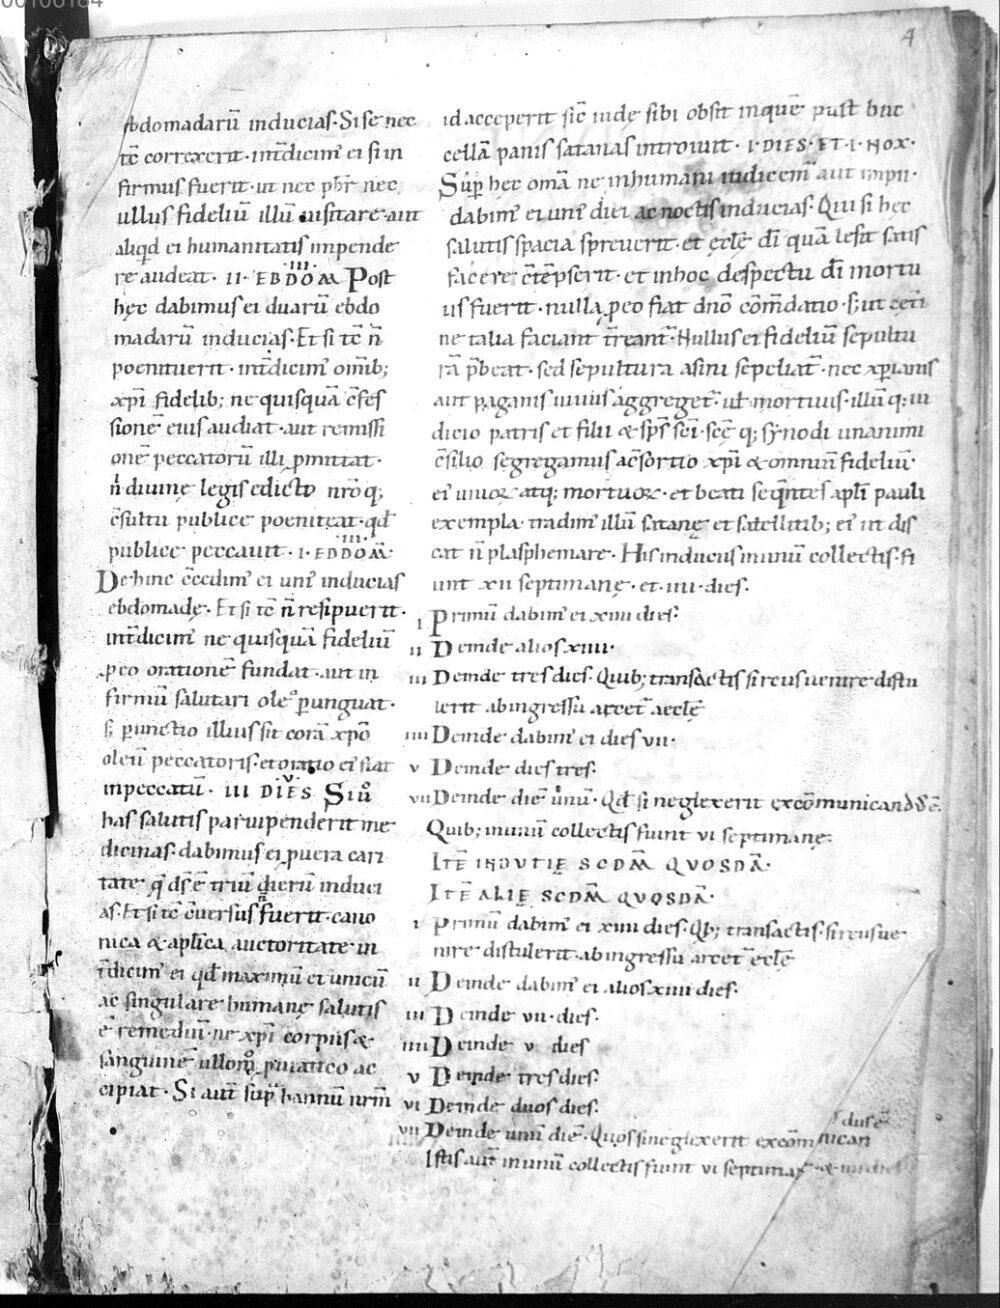 00100184
4
ebdomadarū inducias· Si se nec
tc̄ correxerit· int̄dicim᷒ ei si in
firmus fuerit· ut nec pbr̄ nec
ullus fideliū illū uisitare aut
aliqͥd ei humanitatis impende
re audeat· II· EBDOM̄ Post
hęc dabimus ei duarū ebdo
madarū inducias· Et si tc̄ n̄
poenituerit· int̄dicim᷒ omīb;
xp̄i fidelib; ne quisquā c̄fes
sionē eius audiat· aut remissi
onē peccatorū illi ꝑmittat·
n̄ diuinę legis edicto nr̄oq;
c̄sultu publice poeniteat· qd̄
publice peccauit· I· EBDOM̄·
Dehinc c̄cedim᷒ ei uni᷒ inducias
ebdomadę· Et si tc̄ n̄ resipuerit·
int̄dicim᷒ ne quisquā fideliū
ꝓ eo orationē fundat· aut in
firmū salutari oleo perunguat·
s; punctio illius sit corā xp̄o
oleū peccatoris· et oratio ei᷒ fiat
in peccatū· III DIES Si ū
has salutis paruipenderit me
dicinas· dabimus ei ꝓ uera cari
tate· q̄ ds̄ ē triū dierū induci
as· Et si tc̄ c̄uersus n̄ fuerit· cano
nica & aplica auctoritate in
t̄dicim᷒ ei qd̄ maximū et unicū
ac singulare humanę salutis
ē remediū· ne xp̄i corpus &
sanguinē ullom̊ ꝓ uiatico ac
cipiat· Si aut̄ sup̄ bannū nr̄m
id acceperit sic̄ iude sibi obsit in quē post buc
cellā panis satanas introiuit· I· DIES· ET· I· NOX·
Sup̄ hęc om̄a ne inhumani iudicem᷒ aut impii·
dabim᷒ ei uni᷒ diei ac noctis inducias· Qui si hęc
salutis spacia spreuerit· et ęcl̄ę dī quā lesit satis
facere c̄tēpserit· et in hoc despectu dī mortu
us fuerit· nulla ꝓ eo fiat dn̄o cōm̄datio· s; ut cet̄i
ne talia faciant t̄reant᷒· Nullus ei fideliū sepultu
rā p̄beat· sed sepultura asini sepeliat᷒· nec xp̄ianis
aut paganis uiuus aggreget᷒· ut mortuus· illūq; iu
dicio patris et filii & sp̄s sc̄i· sc̄ęq; synodi unanimi
c̄silio segregamus a c̄sortio xp̄i & omnium fideliū·
ei᷒ uiuoꝝ atq; mortuoꝝ· et beati seqͤntes apl̄i pauli
exempla· tradim᷒ illū satanę et satellitib; ei᷒ ut dis
cat n̄ plasphemare· His inducus in unū collectis· fi
unt XII septimanę· et· IIII· dies·
I Primū dabim᷒ ei XIIII dies·
II Deinde alios XIIII·
III Deinde tres dies· Quib; transactis si reus uenire distu
lerit ab ingressu arcet᷒ aeclę̄
IIII Deinde dabim᷒ ei dies VII·
V Deinde dies tres·
VII Deinde diē unū· Qd̄ si neglexerit excōmunicandus ē·
Quib; in unū collectis fiunt VI septimanę·
ITĒ INDUTIĘ SCDM̄ QUOSDĀ·
ITĒ ALIĘ SCDM̄ QUOSDĀ·
I Primū dabim᷒ ei XIIII dies· Qͥb; transactis· si reus ue
nire distulerit ab ingressu arcet᷒ ecl̄ę
II Deinde dabim᷒ ei alios XIIII dies·
III Deinde VII· dies·
IIII Deinde V dies
V Deinde tres dies·
VI Deinde duos dies·
VII Deinde unū diē· Quos si neglexerit excōmunican
dus ē
Istis aut̄ in unū collectis fiunt VI septimanę